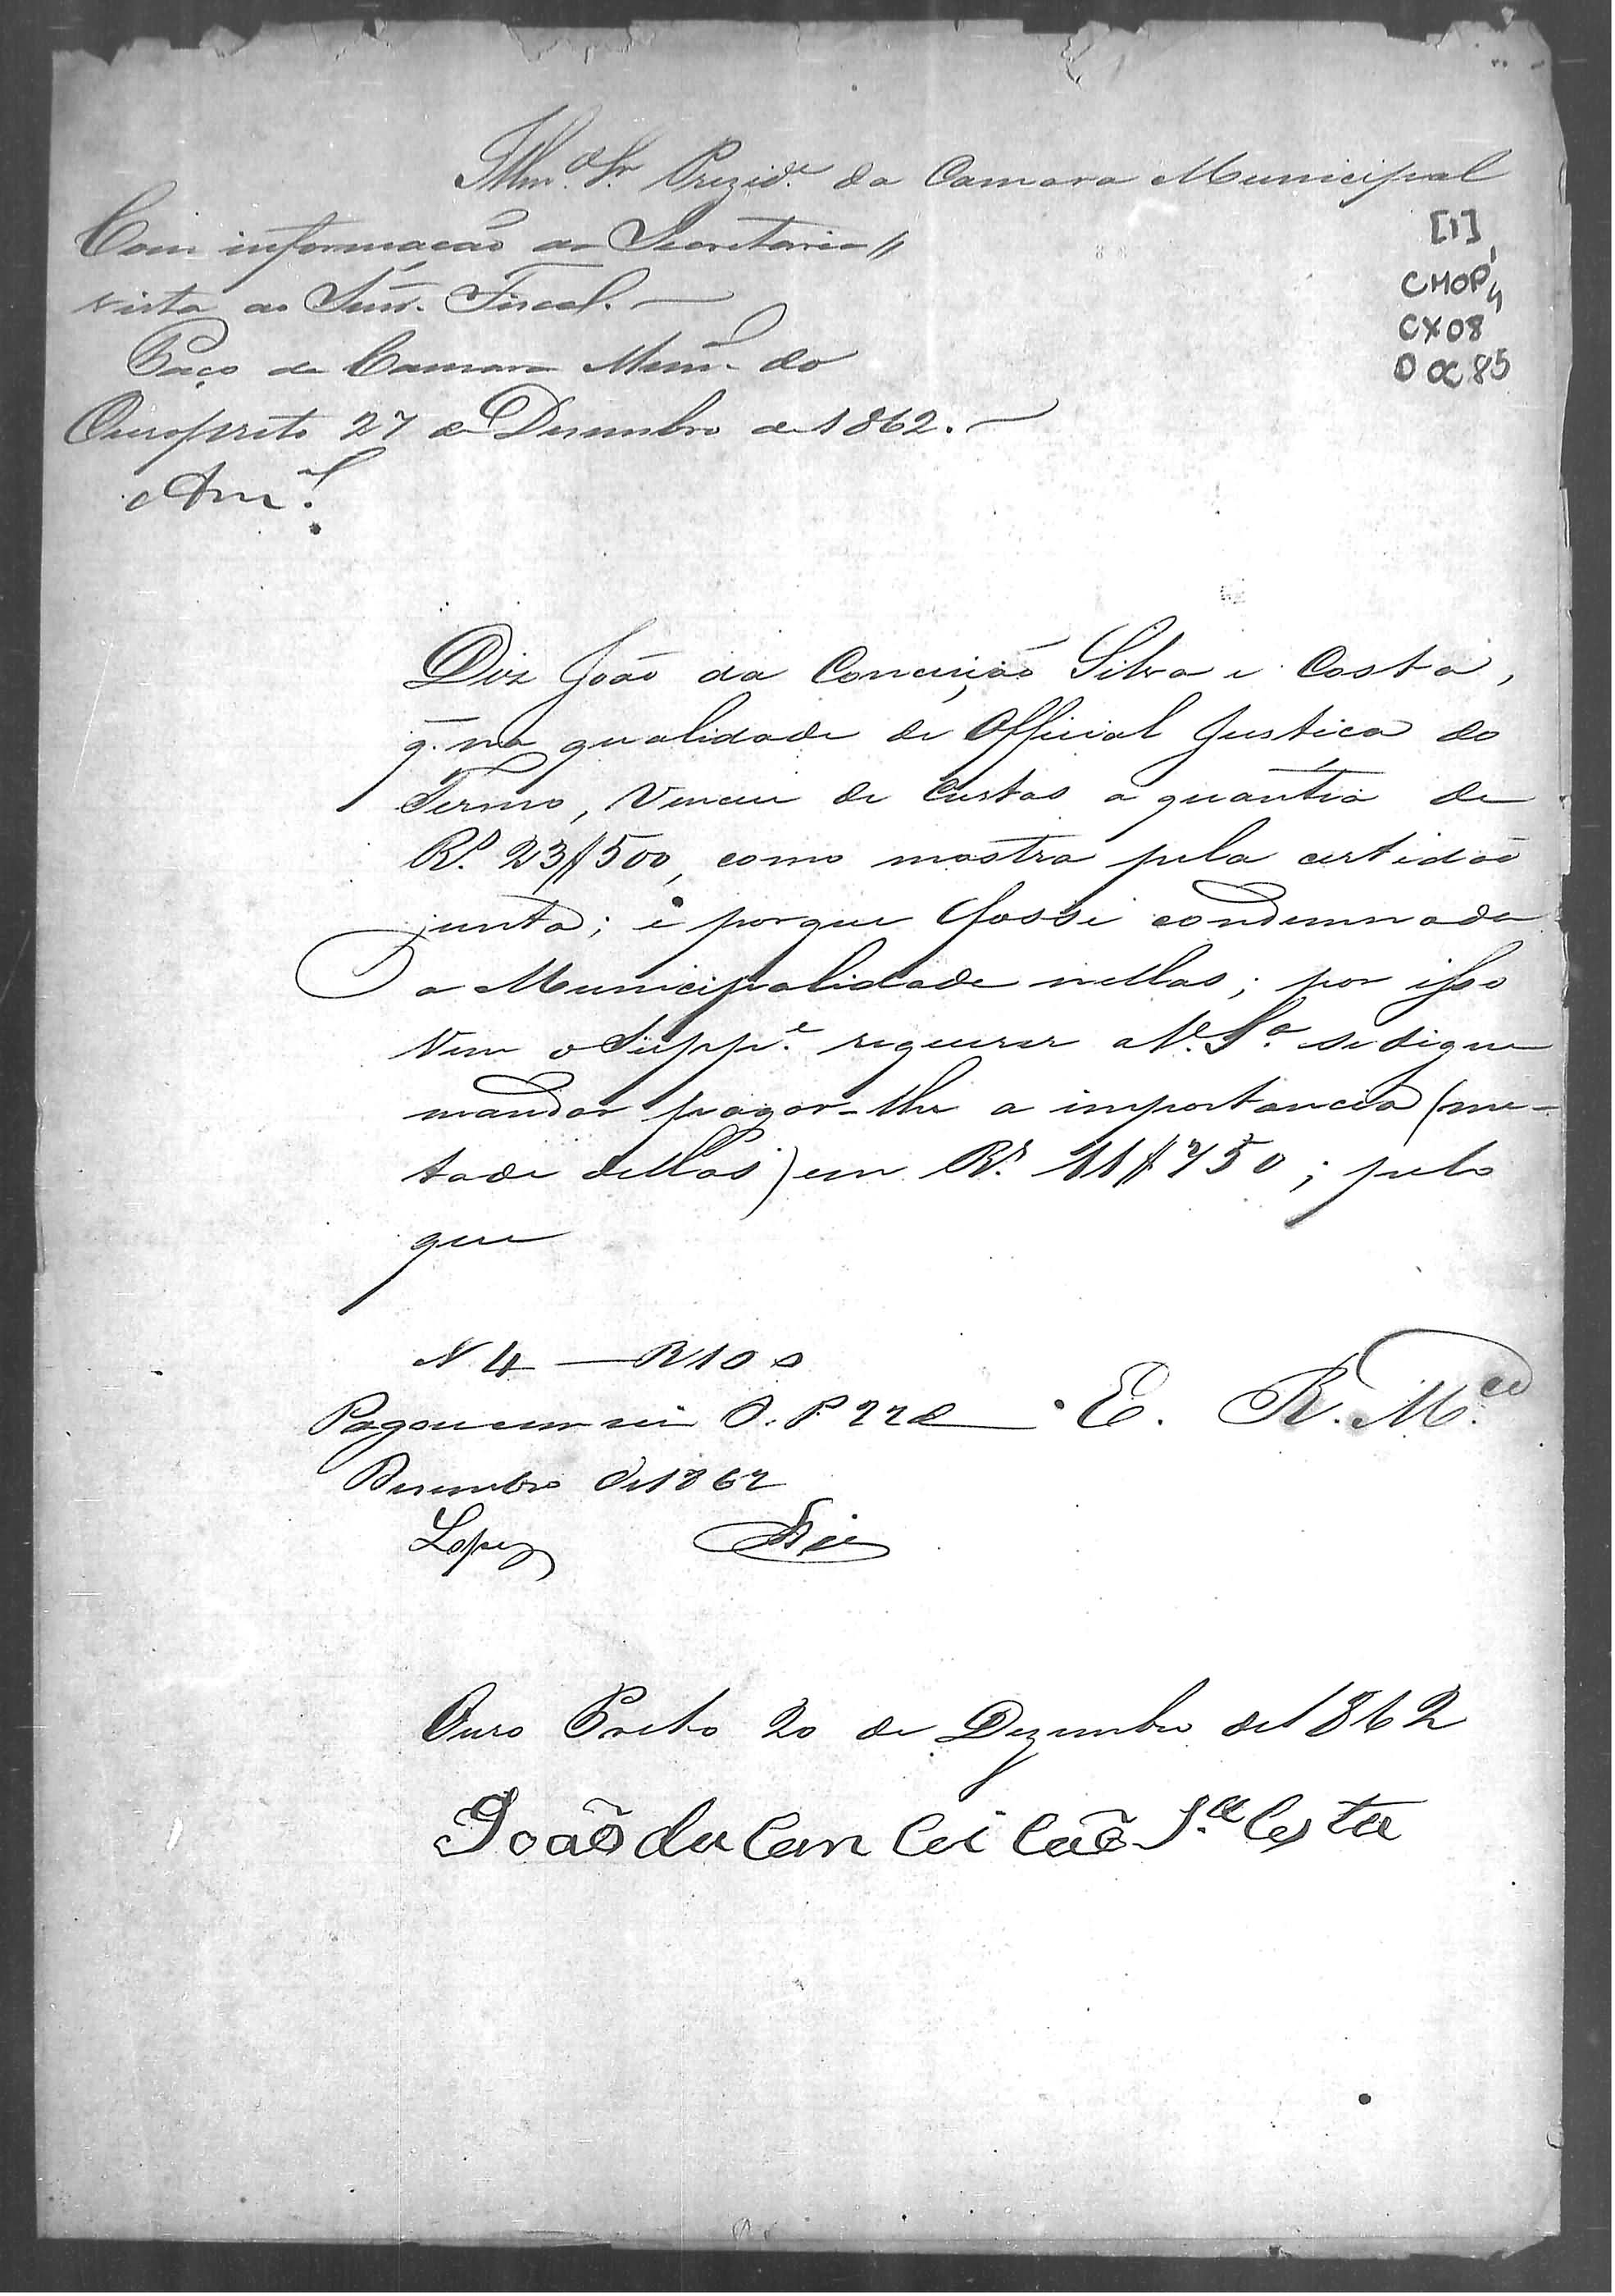 Illm.º Sr. Prezid.e da Camara Municipal
[1]
CMOP
CX08
DOC 85
Com informação a Secretaria
vista ao Snr. Fiscal.
Paço da Camara Mun. do
Ouropreto 27 de Desembro de 1862.
Am.al
Diz João da Conceição Silva e Costa,
q. na qualidade de Official Justiça do
Termo, Venceu de Custas a quantia de
Rs. 23$500, como mostra pela certidão
junta; e porque fosse condemnada
a Municipalidade nellas; por isso
Vem o Supp.e requerer a V. S.a se digne
mandar pagar-lhe a importancia (me-
tade dellas) em Rs. 11$750; pelo
que
N 4 — R 100
Pagou cem reis O. P. 22 de
Desembro de 1862
Lopes
E. R. M.ce
Ouro Preto 20 de Dezembro de 1862
João da Conceicão S.a Costa